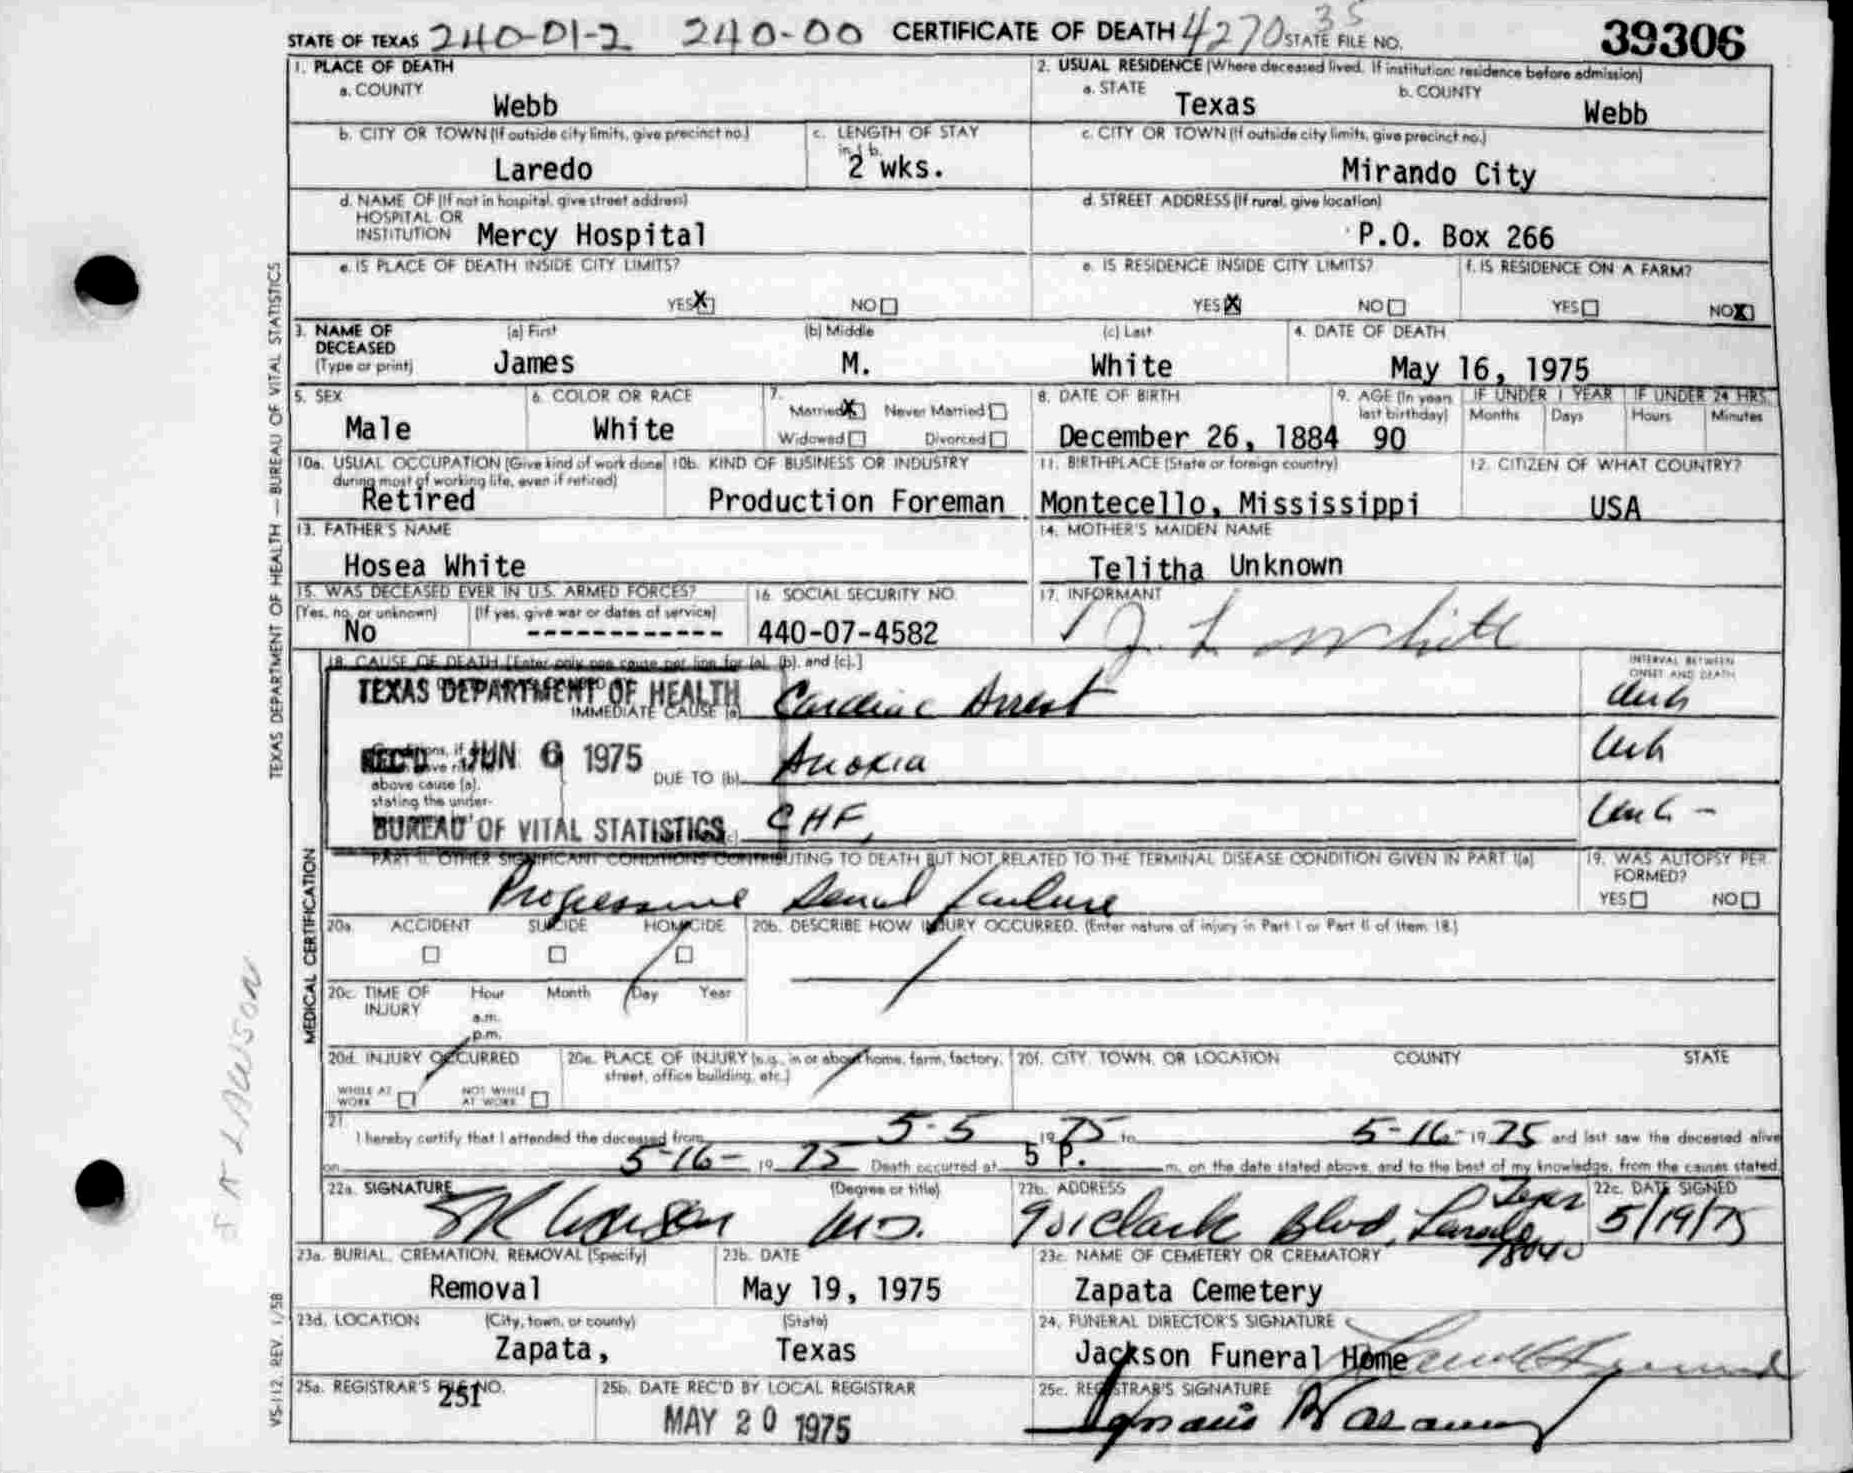 STATE OF TEXAS 240-01-2 240-00 CERTIFICATE OF DEATH 4270 35 STATE FILE NO. 39306
1. PLACE OF DEATH
a. COUNTY
Webb
2. USUAL RESIDENCE (Where deceased lived. If institution: residence before admission)
a. STATE
Texas
b. COUNTY
Webb
b. CITY OR TOWN (If outside city limits, give precinct no.)
Laredo
c. LENGTH OF STAY
in 1 b.
2 wks.
c. CITY OR TOWN (If outside city limits, give precinct no.)
Mirando City
d. NAME OF (If not in hospital, give street address)
HOSPITAL OR
INSTITUTION Mercy Hospital
d. STREET ADDRESS (If rural, give location)
P.O. Box 266
e. IS PLACE OF DEATH INSIDE CITY LIMITS?
YES X NO
e. IS RESIDENCE INSIDE CITY LIMITS?
YES X NO
f. IS RESIDENCE ON A FARM?
YES NO X
3. NAME OF
DECEASED
(Type or print)
(a) First
James
(b) Middle
M.
(c) Last
White
4. DATE OF DEATH
May 16, 1975
5. SEX
Male
6. COLOR OR RACE
White
7.
Married X Never Married
Widowed Divorced
8. DATE OF BIRTH
December 26, 1884
9. AGE (In years
last birthday)
90
IF UNDER 1 YEAR
Months Days
IF UNDER 24 HRS.
Hours Minutes
10a. USUAL OCCUPATION (Give kind of work done
during most of working life, even if retired)
Retired
10b. KIND OF BUSINESS OR INDUSTRY
Production Foreman
11. BIRTHPLACE (State or foreign country)
Montecello, Mississippi
12. CITIZEN OF WHAT COUNTRY?
USA
13. FATHER'S NAME
Hosea White
14. MOTHER'S MAIDEN NAME
Telitha Unknown
15. WAS DECEASED EVER IN U.S. ARMED FORCES?
(Yes, no, or unknown)
No
(If yes, give war or dates of service)
------------
16. SOCIAL SECURITY NO.
440-07-4582
17. INFORMANT
J. L. White
18. CAUSE OF DEATH [Enter only one cause per line for (a), (b), and (c).]
INTERVAL BETWEEN
ONSET AND DEATH
TEXAS DEPARTMENT OF HEALTH
IMMEDIATE CAUSE (a) Cardiac Arrest
REC'D JUN 6 1975
above cause (a),
stating the under-
DUE TO (b) Anoxia
BUREAU OF VITAL STATISTICS
CHF,
PART II. OTHER SIGNIFICANT CONDITIONS CONTRIBUTING TO DEATH BUT NOT RELATED TO THE TERMINAL DISEASE CONDITION GIVEN IN PART I(a)
Progressive Renal failure
19. WAS AUTOPSY PER-
FORMED?
YES NO
20a. ACCIDENT SUICIDE HOMICIDE
20b. DESCRIBE HOW INJURY OCCURRED. (Enter nature of injury in Part I or Part II of Item 18.)
20c. TIME OF
INJURY
Hour Month Day Year
a.m.
p.m.
20d. INJURY OCCURRED
WHILE AT
WORK
NOT WHILE
AT WORK
20e. PLACE OF INJURY (e.g., in or about home, farm, factory,
street, office building, etc.)
20f. CITY, TOWN, OR LOCATION COUNTY STATE
21.
I hereby certify that I attended the deceased from 5-5 1975 to 5-16- 1975 and last saw the deceased alive
on 5-16- 1975 Death occurred at 5 P. m. on the date stated above, and to the best of my knowledge, from the causes stated.
22a. SIGNATURE (Degree or title)
M.D.
22b. ADDRESS
901 Clark Blvd, Laredo Texas
78040
22c. DATE SIGNED
5/19/75
23a. BURIAL, CREMATION, REMOVAL (Specify)
Removal
23b. DATE
May 19, 1975
23c. NAME OF CEMETERY OR CREMATORY
Zapata Cemetery
23d. LOCATION (City, town, or county) (State)
Zapata, Texas
24. FUNERAL DIRECTOR'S SIGNATURE
Jackson Funeral Home
25a. REGISTRAR'S FILE NO.
251
25b. DATE REC'D BY LOCAL REGISTRAR
MAY 20 1975
25c. REGISTRAR'S SIGNATURE
TEXAS DEPARTMENT OF HEALTH — BUREAU OF VITAL STATISTICS
MEDICAL CERTIFICATION
VS-112 REV. 1/58
LAWSON